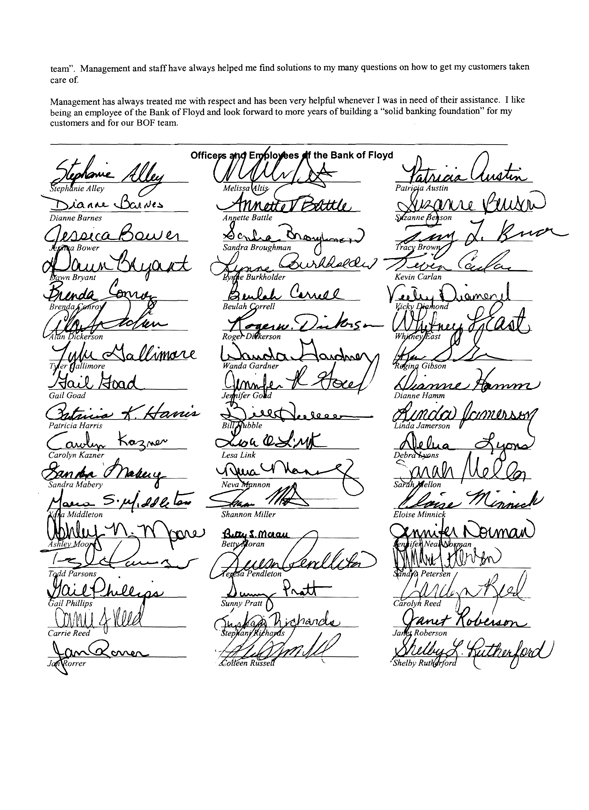 team". Management and staff have always helped me find solutions to my many questions on how to get my customers taken
care of.
Management has always treated me with respect and has been very helpful whenever I was in need of their assistance. I like
being an employee of the Bank of Floyd and look forward to more years of building a "solid banking foundation" for my
customers and for our BOF team.
Officers and Employees of the Bank of Floyd
Stephanie Alley Patricia Austin
Stephanie Alley Melissa Altis Patricia Austin
Dianne Barnes Annette Battle Suzanne Benson
Dianne Barnes Annette Battle Suzanne Benson
Jessica Bower Sandra Broughman
Jessica Bower Sandra Broughman Tracy Brown
Dawn Bryant Lynne Burkholder Kevin Carlan
Dawn Bryant Lynne Burkholder Kevin Carlan
Brenda Conroy Beulah Correll Vicky Diamond
Brenda Conroy Beulah Correll Vicky Diamond
Alan Dickerson Roger W. Dickerson Whitney L East
Alan Dickerson Roger Dickerson Whitney East
Tyler Gallimore Wanda Gardner
Tyler Gallimore Wanda Gardner Regina Gibson
Gail Goad Jennifer R Goad Dianne Hamm
Gail Goad Jennifer Goad Dianne Hamm
Patricia K. Harris Bill Hubble Linda Jamerson
Patricia Harris Bill Hubble Linda Jamerson
Carolyn Kazner Lesa Link Debra Lyons
Carolyn Kazner Lesa Link Debra Lyons
Sandra Mabery Neva Mannon Sarah Mellon
Sandra Mabery Neva Mannon Sarah Mellon
S. Middleton Eloise Minnick
Edna Middleton Shannon Miller Eloise Minnick
Ashley N. Moore Betty Jennifer Norman
Ashley Moore Betty Moran Jennifer Neal Norman
Teresa Pendleton Sandra Petersen
Todd Parsons Teresa Pendleton Sandra Petersen
Gail Phillips Sunny Pratt Carolyn Reed
Gail Phillips Sunny Pratt Carolyn Reed
Carrie J Reed Stephany Richards Janet Roberson
Carrie Reed Stephany Richards Janet Roberson
Jan Rorrer Shelby L. Rutherford
Jan Rorrer Colleen Russell Shelby Rutherford